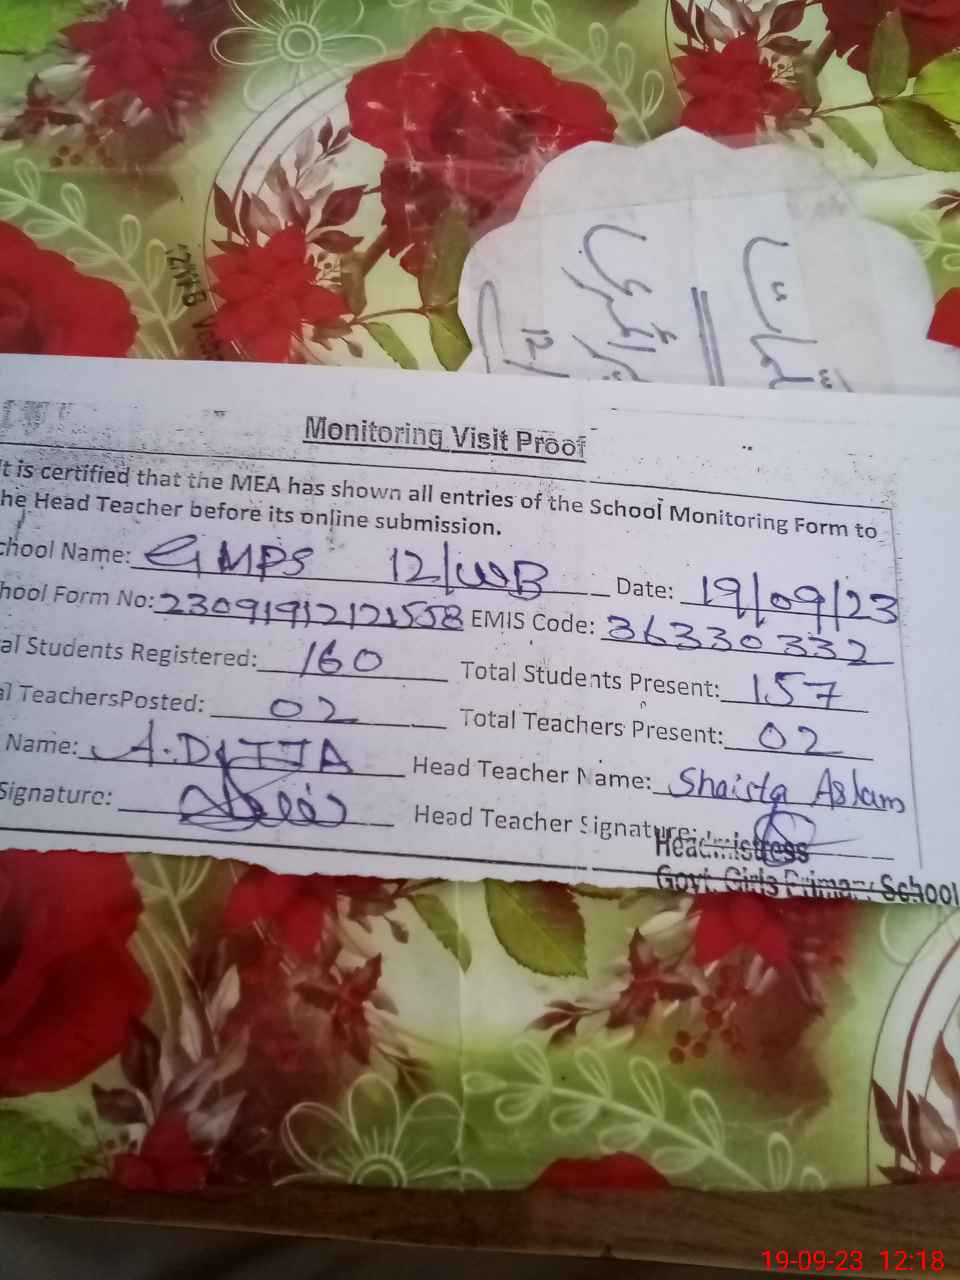 Monitoring Visit Proof
It is certified that the MEA has shown all entries of the School Monitoring Form to
he Head Teacher before its online submission.
chool Name: GMPS 12/WB Date: 19/09/23
hool Form No: 23091912121558 EMIS Code: 36330332
al Students Registered: 160 Total Students Present: 157
al TeachersPosted: 02 Total Teachers Present: 02
Name: A.DITTA Head Teacher Name: Shaista Aslam
Signature: Head Teacher Signature:
Headmistress
Govt. Girls Primary School
19-09-23 12:18